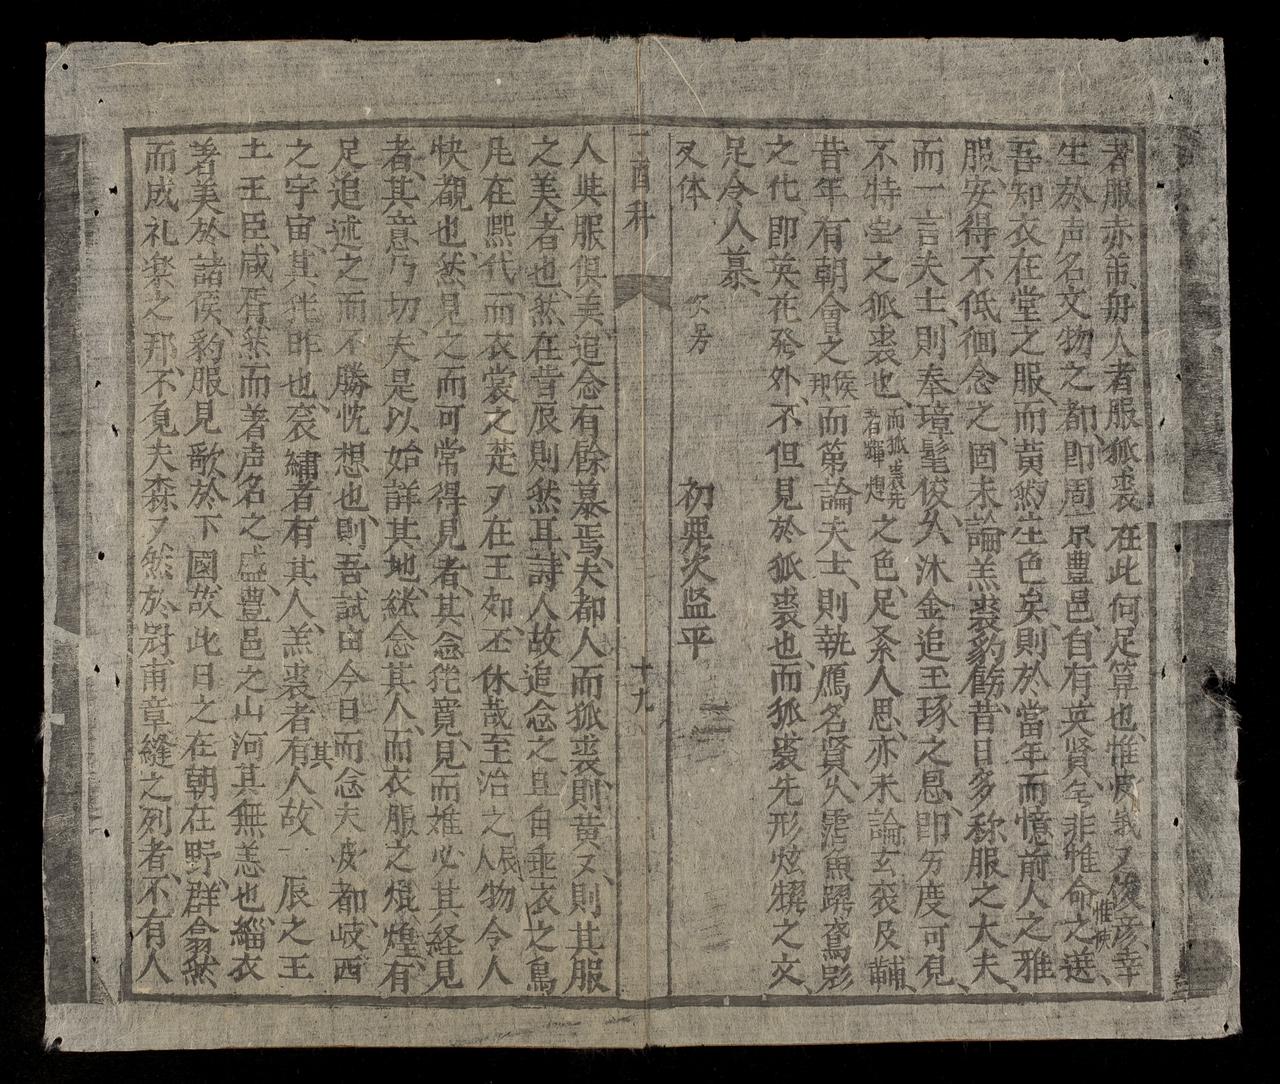 者服赤芾毋人者服狐裘在此何足算也惟彼峩又俊彦幸
生於声名文物之都即周京豊邑自有英賢無非惟命之選
吾知衣在堂之服而黄然生色矣則於當年而憶前人之雅
服安得不低徊念之固未論羔裘豹餙昔日多称服之大夫
而一言夫士則奉璋髦俊久沐金追玉琢之恩即万度可見
不特堂之狐裘也而狐裘先若輝煌之色足系人思亦未論玄衮及黼
昔年有朝會之侯邦而第論夫士則執鴈名賢久霑魚躍鳶影
之化即英花発外不但見於狐裘也而狐裘先形炫耀之文
足令人慕
又体 次房 初覆次監平
丁酉科 十九
人與服俱美追念有餘慕焉夫都人而狐裘則黄又則其服
之美者也然在昔辰則然耳詩人故追念之且自垂衣之鳥
凡在熙代而衣裳之楚又在王如丕休哉至治之辰人物令人
快覩也然見之而可常得見者其念徃寔見而难必其経見
者其意乃切夫是以始詳其地継念其人而衣服之燈煌有
足追述之而不勝恍想也則吾試由今日而念夫彼都岐西
之宇宙其徃昨也衮繡者有其人羔裘者有其人故一辰之王
土王臣咸胥然而著声名之盛豊邑之山河其無恙也緇衣
著美於諸侯豹服見歌於下國故此日之在朝在野群翕然
而成礼楽之邦不覓夫森又然於冔甫章縫之列者不有人